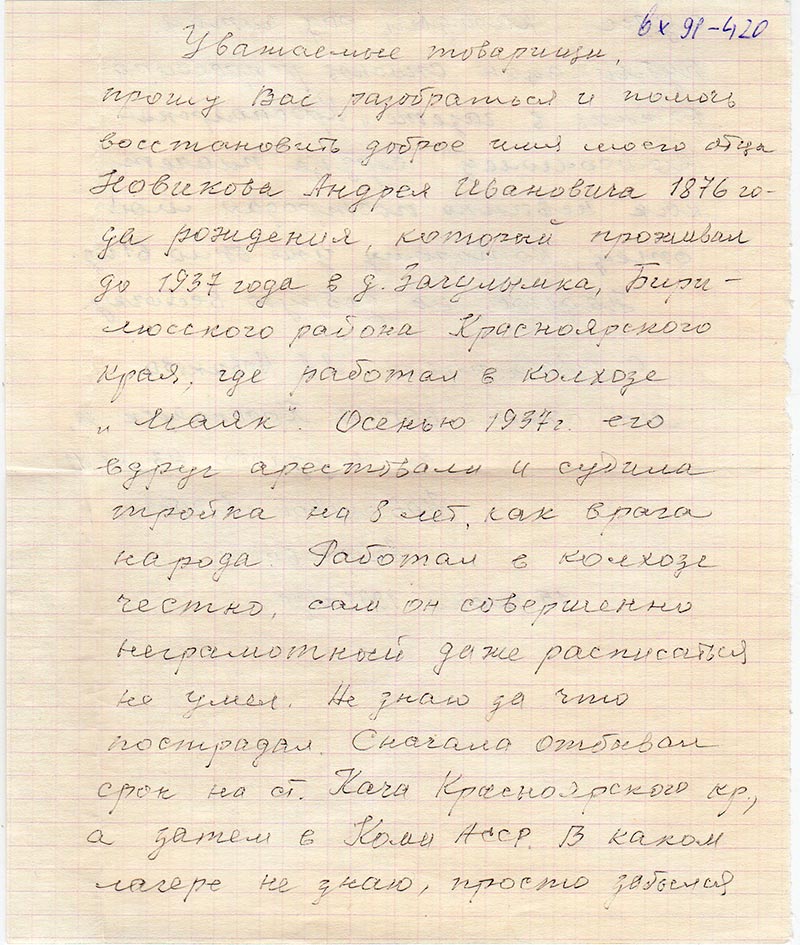 вх 91-420
Уважаемые товарищи,
прошу Вас разобраться и помочь
восстановить доброе имя моего отца
Новикова Андрея Ивановича 1876 го-
да рождения, который проживал
до 1937 года в д. Зачулымка, Бири-
люсского района Красноярского
края, где работал в колхозе
„Маяк". Осенью 1937г. его
вдруг арестовали и судила
тройка на 8 лет, как врага
народа. Работал в колхозе
честно, сам он совершенно
неграмотный даже расписаться
не умел. Не знаю за что
пострадал. Сначала отбывал
срок на ст. Кача Красноярского кр.,
а затем в Коми АССР. В каком
лагере не знаю, просто забылся